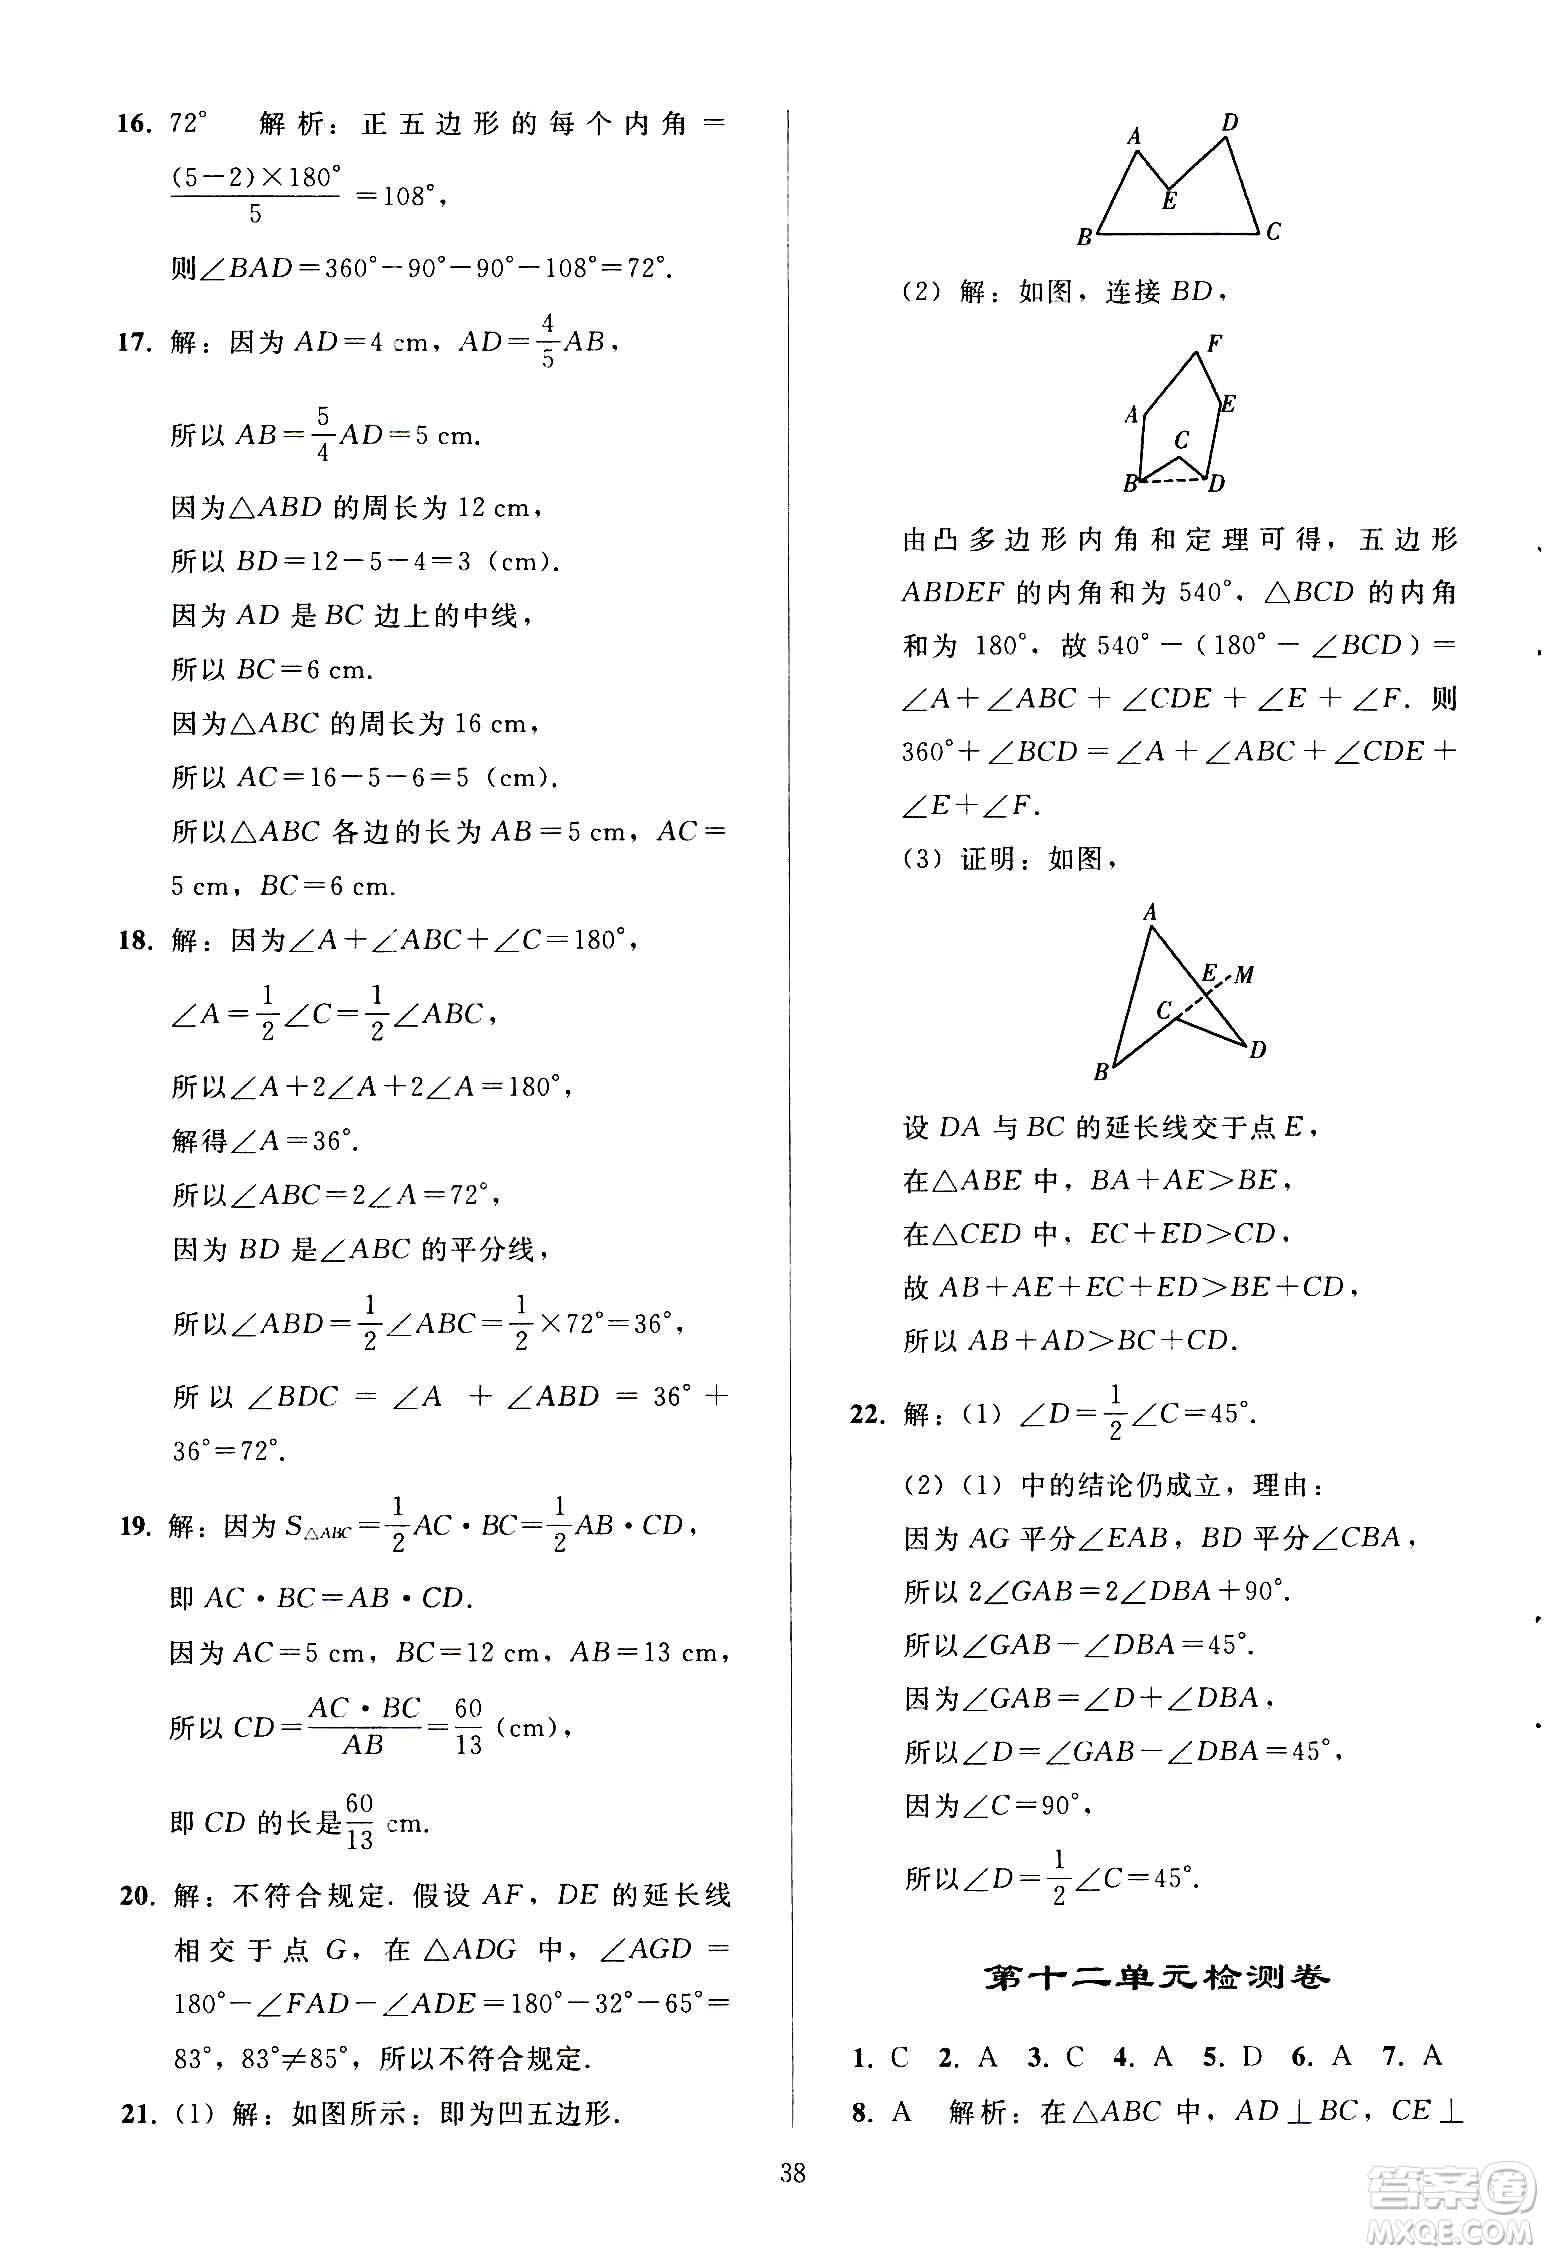 16. 72° 解析：正五边形的每个内角＝
(5－2)×180°/5＝108°，
则∠BAD＝360°－90°－90°－108°＝72°.
17. 解：因为 AD＝4 cm，AD＝4/5AB，
所以 AB＝5/4AD＝5 cm.
因为△ABD 的周长为 12 cm，
所以 BD＝12－5－4＝3（cm）.
因为 AD 是 BC 边上的中线，
所以 BC＝6 cm.
因为△ABC 的周长为 16 cm，
所以 AC＝16－5－6＝5（cm）.
所以△ABC 各边的长为 AB＝5 cm，AC＝
5 cm，BC＝6 cm.
18. 解：因为∠A＋∠ABC＋∠C＝180°，
∠A＝1/2∠C＝1/2∠ABC，
所以∠A＋2∠A＋2∠A＝180°，
解得∠A＝36°.
所以∠ABC＝2∠A＝72°，
因为 BD 是∠ABC 的平分线，
所以∠ABD＝1/2∠ABC＝1/2×72°＝36°，
所以∠BDC＝∠A＋∠ABD＝36°＋
36°＝72°.
19. 解：因为 S△ABC＝1/2AC·BC＝1/2AB·CD，
即 AC·BC＝AB·CD.
因为 AC＝5 cm，BC＝12 cm，AB＝13 cm，
所以 CD＝AC·BC/AB＝60/13（cm），
即 CD 的长是60/13 cm.
20. 解：不符合规定. 假设 AF，DE 的延长线
相交于点 G，在△ADG 中，∠AGD＝
180°－∠FAD－∠ADE＝180°－32°－65°＝
83°，83°≠85°，所以不符合规定.
21.（1）解：如图所示：即为凹五边形.
A D
E
B C
（2）解：如图，连接 BD，
F
A E
C
B D
由凸多边形内角和定理可得，五边形
ABDEF 的内角和为 540°，△BCD 的内角
和为 180°，故 540°－（180°－∠BCD）＝
∠A＋∠ABC＋∠CDE＋∠E＋∠F. 则
360°＋∠BCD＝∠A＋∠ABC＋∠CDE＋
∠E＋∠F.
（3）证明：如图，
A
E M
C
D
B
设 DA 与 BC 的延长线交于点 E，
在△ABE 中，BA＋AE＞BE，
在△CED 中，EC＋ED＞CD，
故 AB＋AE＋EC＋ED＞BE＋CD，
所以 AB＋AD＞BC＋CD.
22. 解：（1）∠D＝1/2∠C＝45°.
（2）（1）中的结论仍成立，理由：
因为 AG 平分∠EAB，BD 平分∠CBA，
所以 2∠GAB＝2∠DBA＋90°.
所以∠GAB－∠DBA＝45°.
因为∠GAB＝∠D＋∠DBA，
所以∠D＝∠GAB－∠DBA＝45°，
因为∠C＝90°，
所以∠D＝1/2∠C＝45°.
第十二单元检测卷
1. C 2. A 3. C 4. A 5. D 6. A 7. A
8. A 解析：在△ABC 中，AD⊥BC，CE⊥
38
答案圈
MXQE.COM